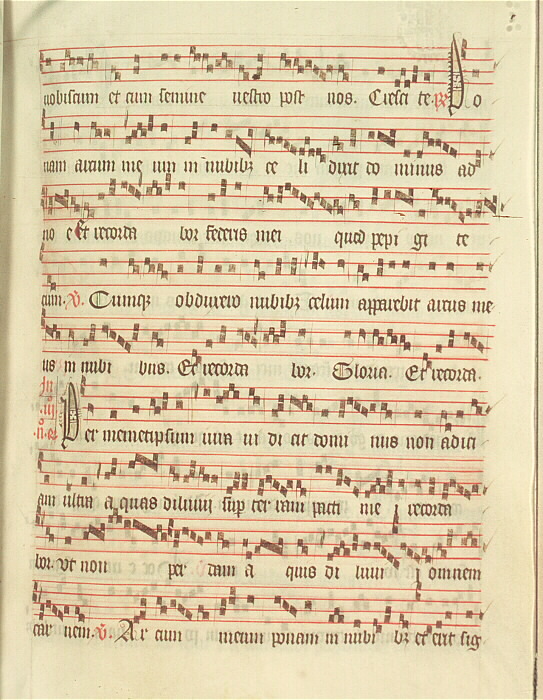 nobiscum et cum semine nestro post nos. Cresci te. Po
nam arcum me um in nubibz ce li dixit do minus ad
no e Et recorda bor federis mei quod pepi gi te
cum. V. Cumqz obduxero nubibz celum apparebit arcus me
us in nubi bus. Et recorda bor. Gloria. Et recorda.
Per memetipsum iura ui di cit domi nus non adici
am ultra a quas diluuij sup ter ram pacti me i recorda
bor. Vt non per dam a quis di luuij omnem
car nem. V. Ar cum meum ponam in nubi bz et erit sig